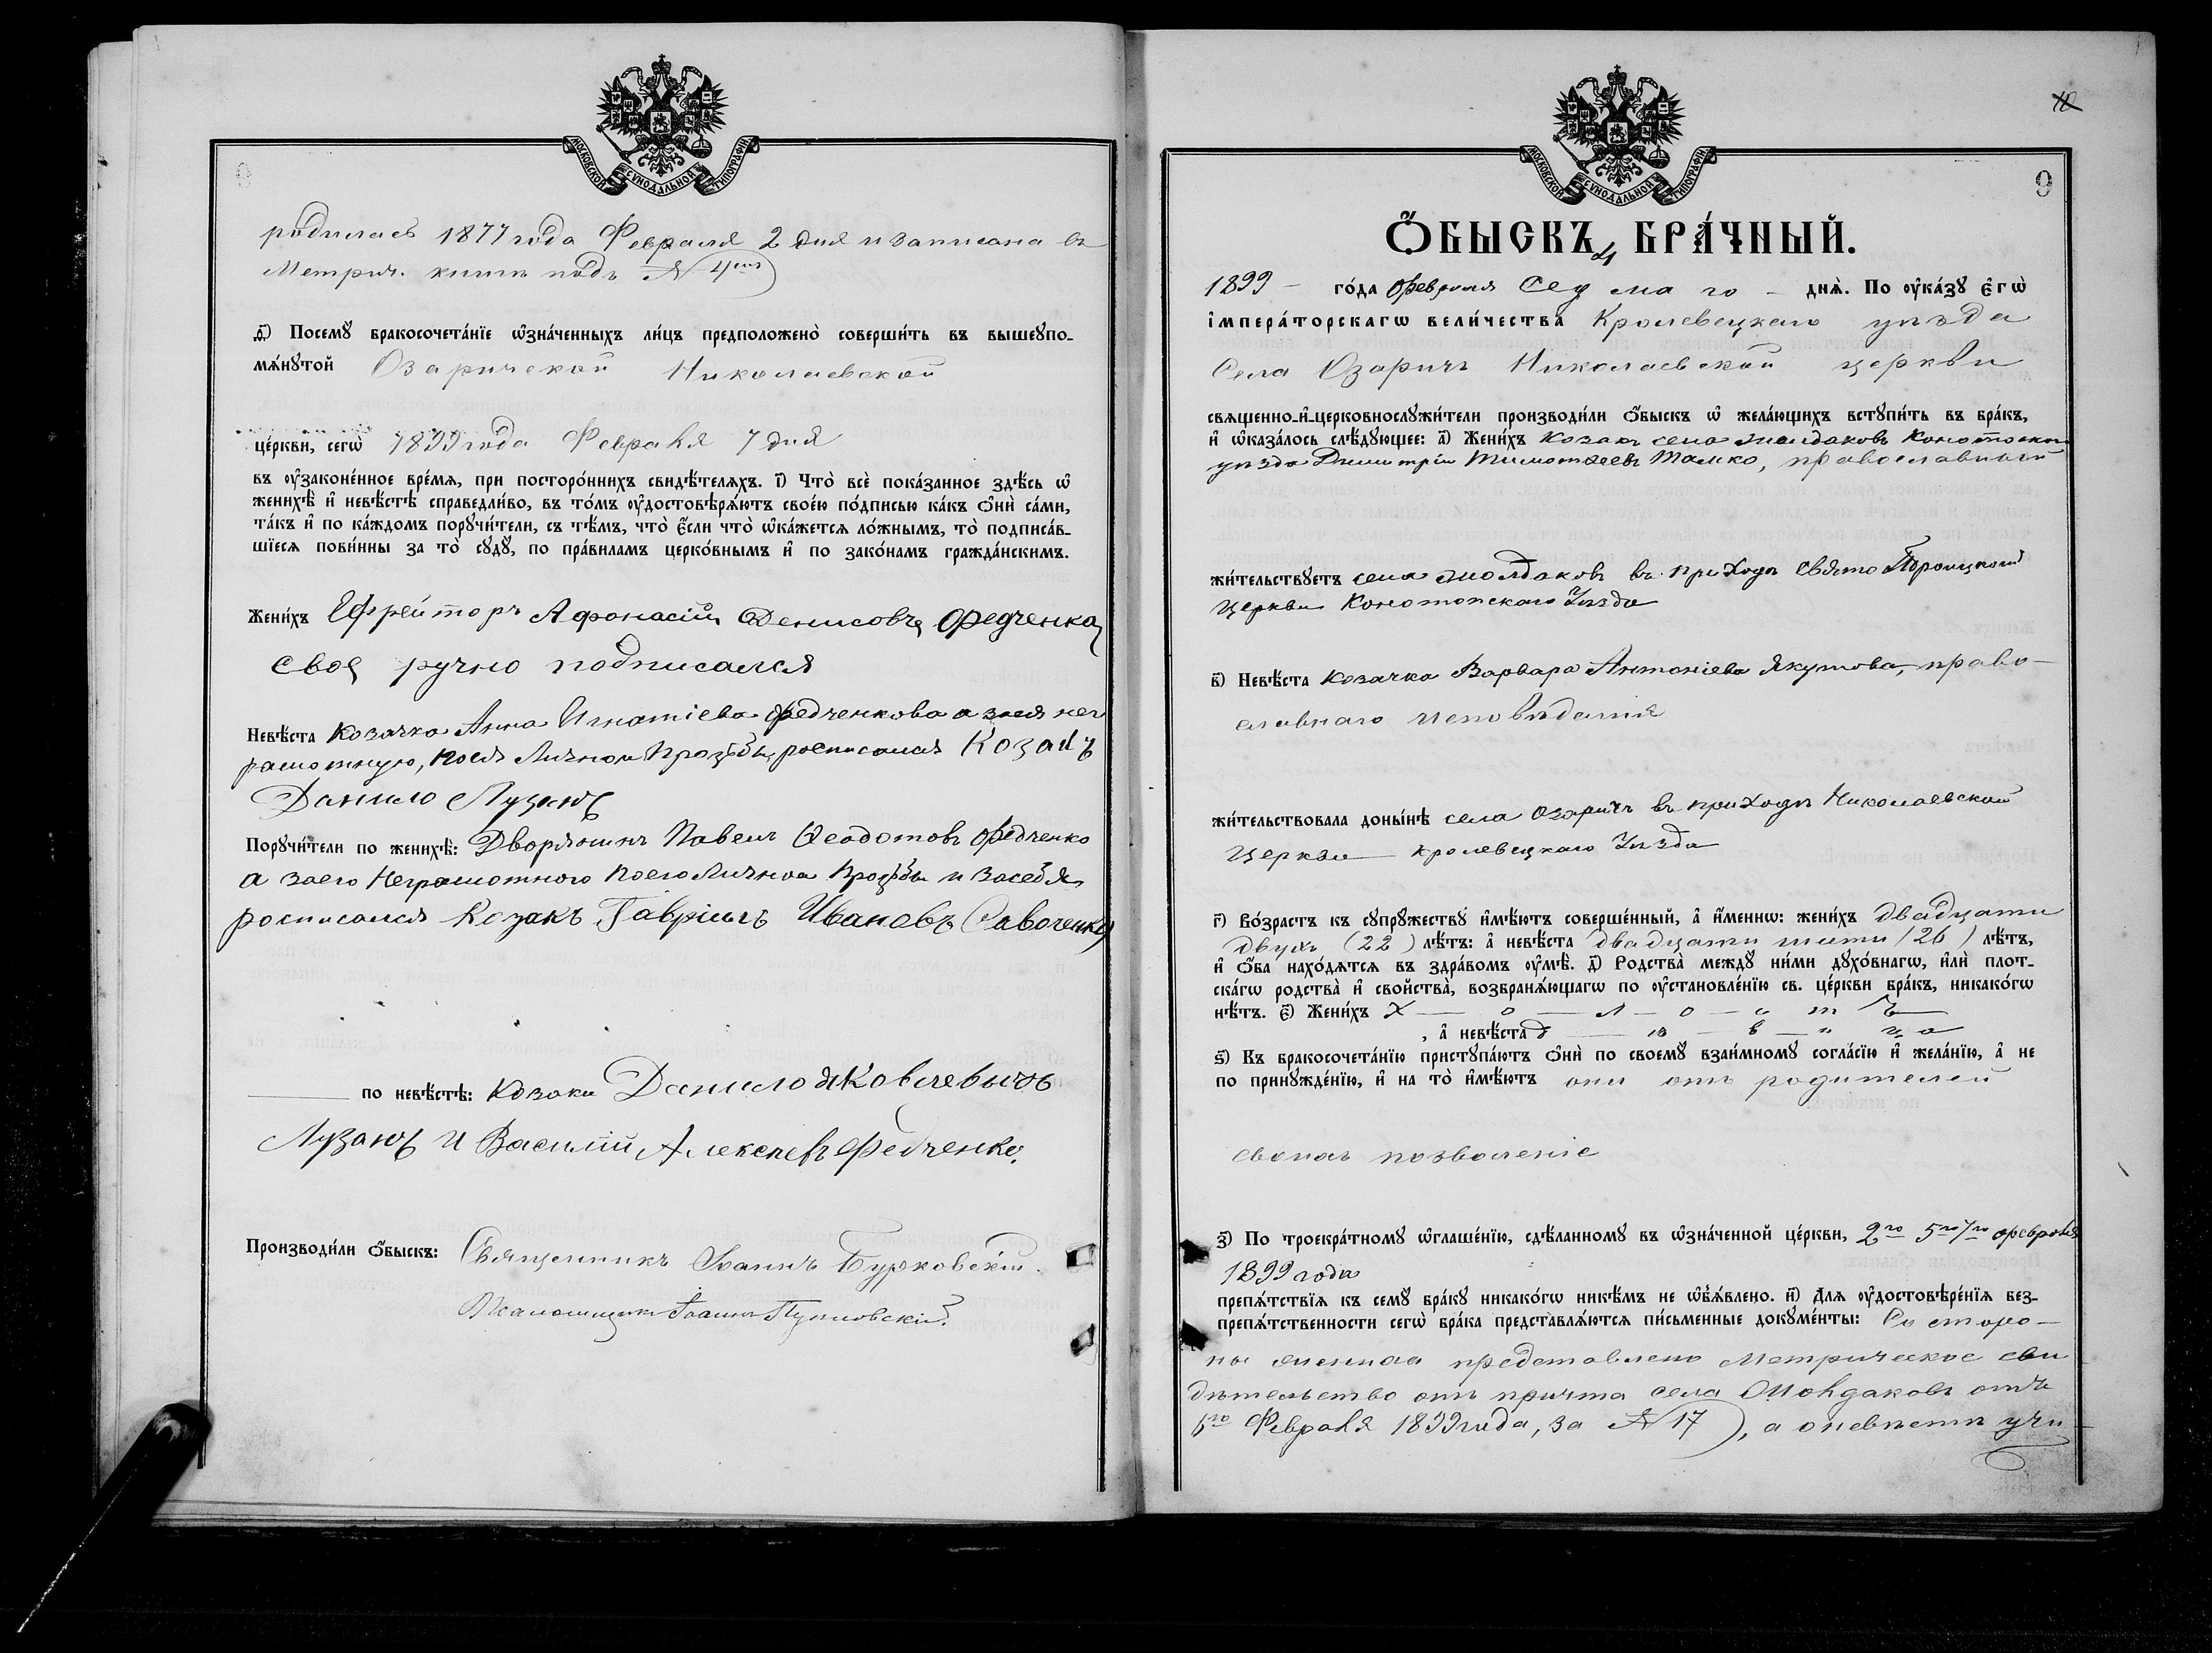 МОСКОВСКОЙ СѴНОДАЛЬНОЙ ТИПОГРАФІИ
родилась 1877 года Февраля 2 дня и записана въ
Метрич. книгѣ подъ № 4ымъ
д҃) Посемꙋ бракосочета́нїе ѡ҆зна́ченныхъ ли́цъ предположено̀ соверши́ть въ вышеꙋпо-
мѧ́нꙋтой Озаричской Николаевской
це́ркви, сегѡ̀ 1899 года Февраля 7 дня
въ ᲂу҆законе́нное вре́мѧ, при посторо́ннихъ свидѣ́телѧхъ. і҃) Что̀ всѐ пока́занное здѣ́сь ѡ҆
женихѣ̀ и҆ невѣ́стѣ справедли́во, въ то́мъ ᲂу҆достовѣрѧ́ютъ свое́ю по́дписью ка́къ ѻ҆нѝ са́ми,
та́къ и҆ по ка́ждомъ порꙋчи́тели, съ тѣ́мъ, что̀ є҆́сли что̀ ѡ҆ка́жетсѧ ло́жнымъ, то̀ подписа́в-
шїесѧ пови́нны за то̀ сꙋдꙋ̀, по пра́виламъ церко́внымъ и҆ по зако́намъ гражда́нскимъ.
Жени́хъ Ефрейторъ Афонасій Денисовъ Федченко
Свое ручно подписался
Невѣ́ста Козачка Анна Игнатіева Федченкова а заея нег
рамотную, поея Личной Прозьбы, росписался Козакъ
Данило Лузанъ
Порꙋчи́тели по женихѣ̀: Дворянинъ Павелъ Ѳеодотовъ Федченко
а заего Неграмотного поего Личной Прозьбы и засебя
росписался Козакъ Гавріилъ Ивановъ Савоченко
по невѣ́стѣ: Козаки Данило Яковлевычъ
Лузанъ и Василій Алексѣевъ Федченко.
Производи́ли ѻ҆́быскъ: Священникъ Іоаннъ Бурковскій.
Псаломщикъ Іоаннъ
10
МОСКОВСКОЙ СѴНОДАЛЬНОЙ ТИПОГРАФІИ
9
Ѻ҆́БЫСКЪ БРА́ЧНЫЙ.
1899 го́да Февраля Седмаго днѧ̀. По ᲂу҆ка́зꙋ є҆гѡ̀
і҆мпера́торскагѡ вели́чества Кролевецкаго уѣзда
Села Озаричъ Николаевской церкви
свѧщенно-и҆-церковнослꙋжи́тели производи́ли ѻ҆́быскъ ѡ҆ жела́ющихъ встꙋпи́ть въ бра́къ,
и҆ ѡ҆каза́лось слѣ́дꙋющее: а҃) Жени́хъ Козакъ села Молдаковъ Конотопска
уѣзда Димитрій Тимоѳеевъ Талко, православный
жи́тельствꙋетъ села Молдаковъ въ приходѣ Свято Троицкой
Церкви Конотопскаго Уѣзда
в҃) Невѣ́ста Козачка Варвара Антоніева Якутова, право-
славнаго исповѣданія
жи́тельствовала доны́нѣ села Озаричъ въ приходѣ Николаевской
Церкви Кролевецкаго Уѣзда
г҃) Во́зрастъ къ сꙋпрꙋ́жествꙋ и҆мѣ́ютъ соверше́нный, а҆ и҆́меннѡ: жени́хъ двадцати
двухъ (22) лѣ́тъ: а҆ невѣ́ста двадцати шти (26) лѣ́тъ,
и҆ ѻ҆́ба нахо́дѧтсѧ въ здра́вомъ ᲂу҆мѣ̀. д҃) Родства̀ междꙋ̀ ни́ми дꙋхо́внагѡ, и҆лѝ плот-
ска́гѡ родства̀ и҆ сво́йства̀, возбранѧ́ющагѡ по ᲂу҆становле́нїю св. це́ркви бра́къ, никако́гѡ
нѣ́тъ. є҃) Жени́хъ Холостъ
, а҆ невѣ́ста дѣвица
ѕ҃) Къ бракосочета́нїю пристꙋпа́ютъ ѻ҆нѝ по своемꙋ̀ взаи́мномꙋ согла́сїю и҆ жела́нїю, а҆ не
по принꙋжде́нїю, и҆ на то̀ и҆мѣ́ютъ они отъ родителей
своихъ позволеніе
з҃) По троекра́тномꙋ ѡ҆глаше́нїю, сдѣ́ланномꙋ въ ѡ҆зна́ченной це́ркви, 2го 5го 7го февраля
1899 года
препѧ́тствїѧ къ семꙋ̀ бра́кꙋ никако́гѡ никѣ́мъ не ѡ҆б̾ѧ́влено. и҃) Длѧ ᲂу҆достовѣре́нїѧ без-
препѧ́тственности сегѡ̀ бра́ка представлѧ́ютсѧ пи́сьменные докꙋме́нты: Со сторо-
ны жениха представлено Метрическое сви
дѣтельство отъ причта села Молдаковъ отъ
6го Февраля 1899 года, за № 17), а оневѣстѣ учи